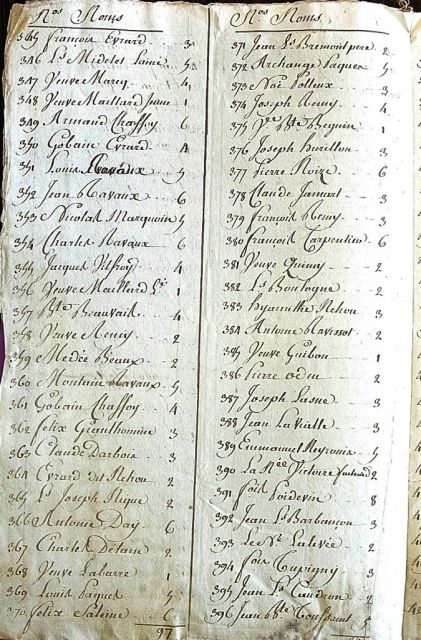 Nos Noms
345 francois Evrard 3
346 Ls Midelet Lainé 5
347 Veuve Marcq 4
348 Veuve Maillard Jeune 1
349 Armand Chaffoy 6
350 Gobain Evrard 4
351 Louis Ravaux 5
352 Jean Ravaux 6
353 Nicolas Marquoin 5
354 Charles Ravaux 6
355 Jacques 4
356 Veuve Maillard 1
357 Bte Beauvais 4
358 Veuve Remy 2
359 Medée Beaux 2
360 Montain Ravaux 5
361 Gobain Chaffoy 4
362 felix Granthomme 3
363 Claude Darbois 3
364 Evrard du Rehou 2
365 Ls Joseph Rique 2
366 Antoine Day 6
367 Charles 2
368 Veuve Labarre 1
369 Louis Paques 5
370 felix 6
97
Nos Noms
371 Jean Ls Bremont pere 2
372 Archange Paques 5
373 Polleux 3
374 Joseph Remy 4
375 Ve Bte Bequin 1
376 Joseph hurillon 3
377 Pierre Noize 6
378 Claude Jamart 3
379 francois Remy 3
380 francois Carpentier 6
381 Veuve Quimy 2
382 Ls Boulogne 2
383 hyacinthe Rehou 3
384 Antoine Ravissot 2
385 Veuve Guibou 1
386 Pierre 2
387 Joseph Lasne 3
388 Jean Lavialle 3
389 Emmanuel 5
390 La Victoire 2
391 fois Poidevin 8
392 Jean Ls Barbancon 3
393 Le 2
394 fois Coupigny 3
395 Jean Ls Caudron 2
396 Jean Bte Toussaint